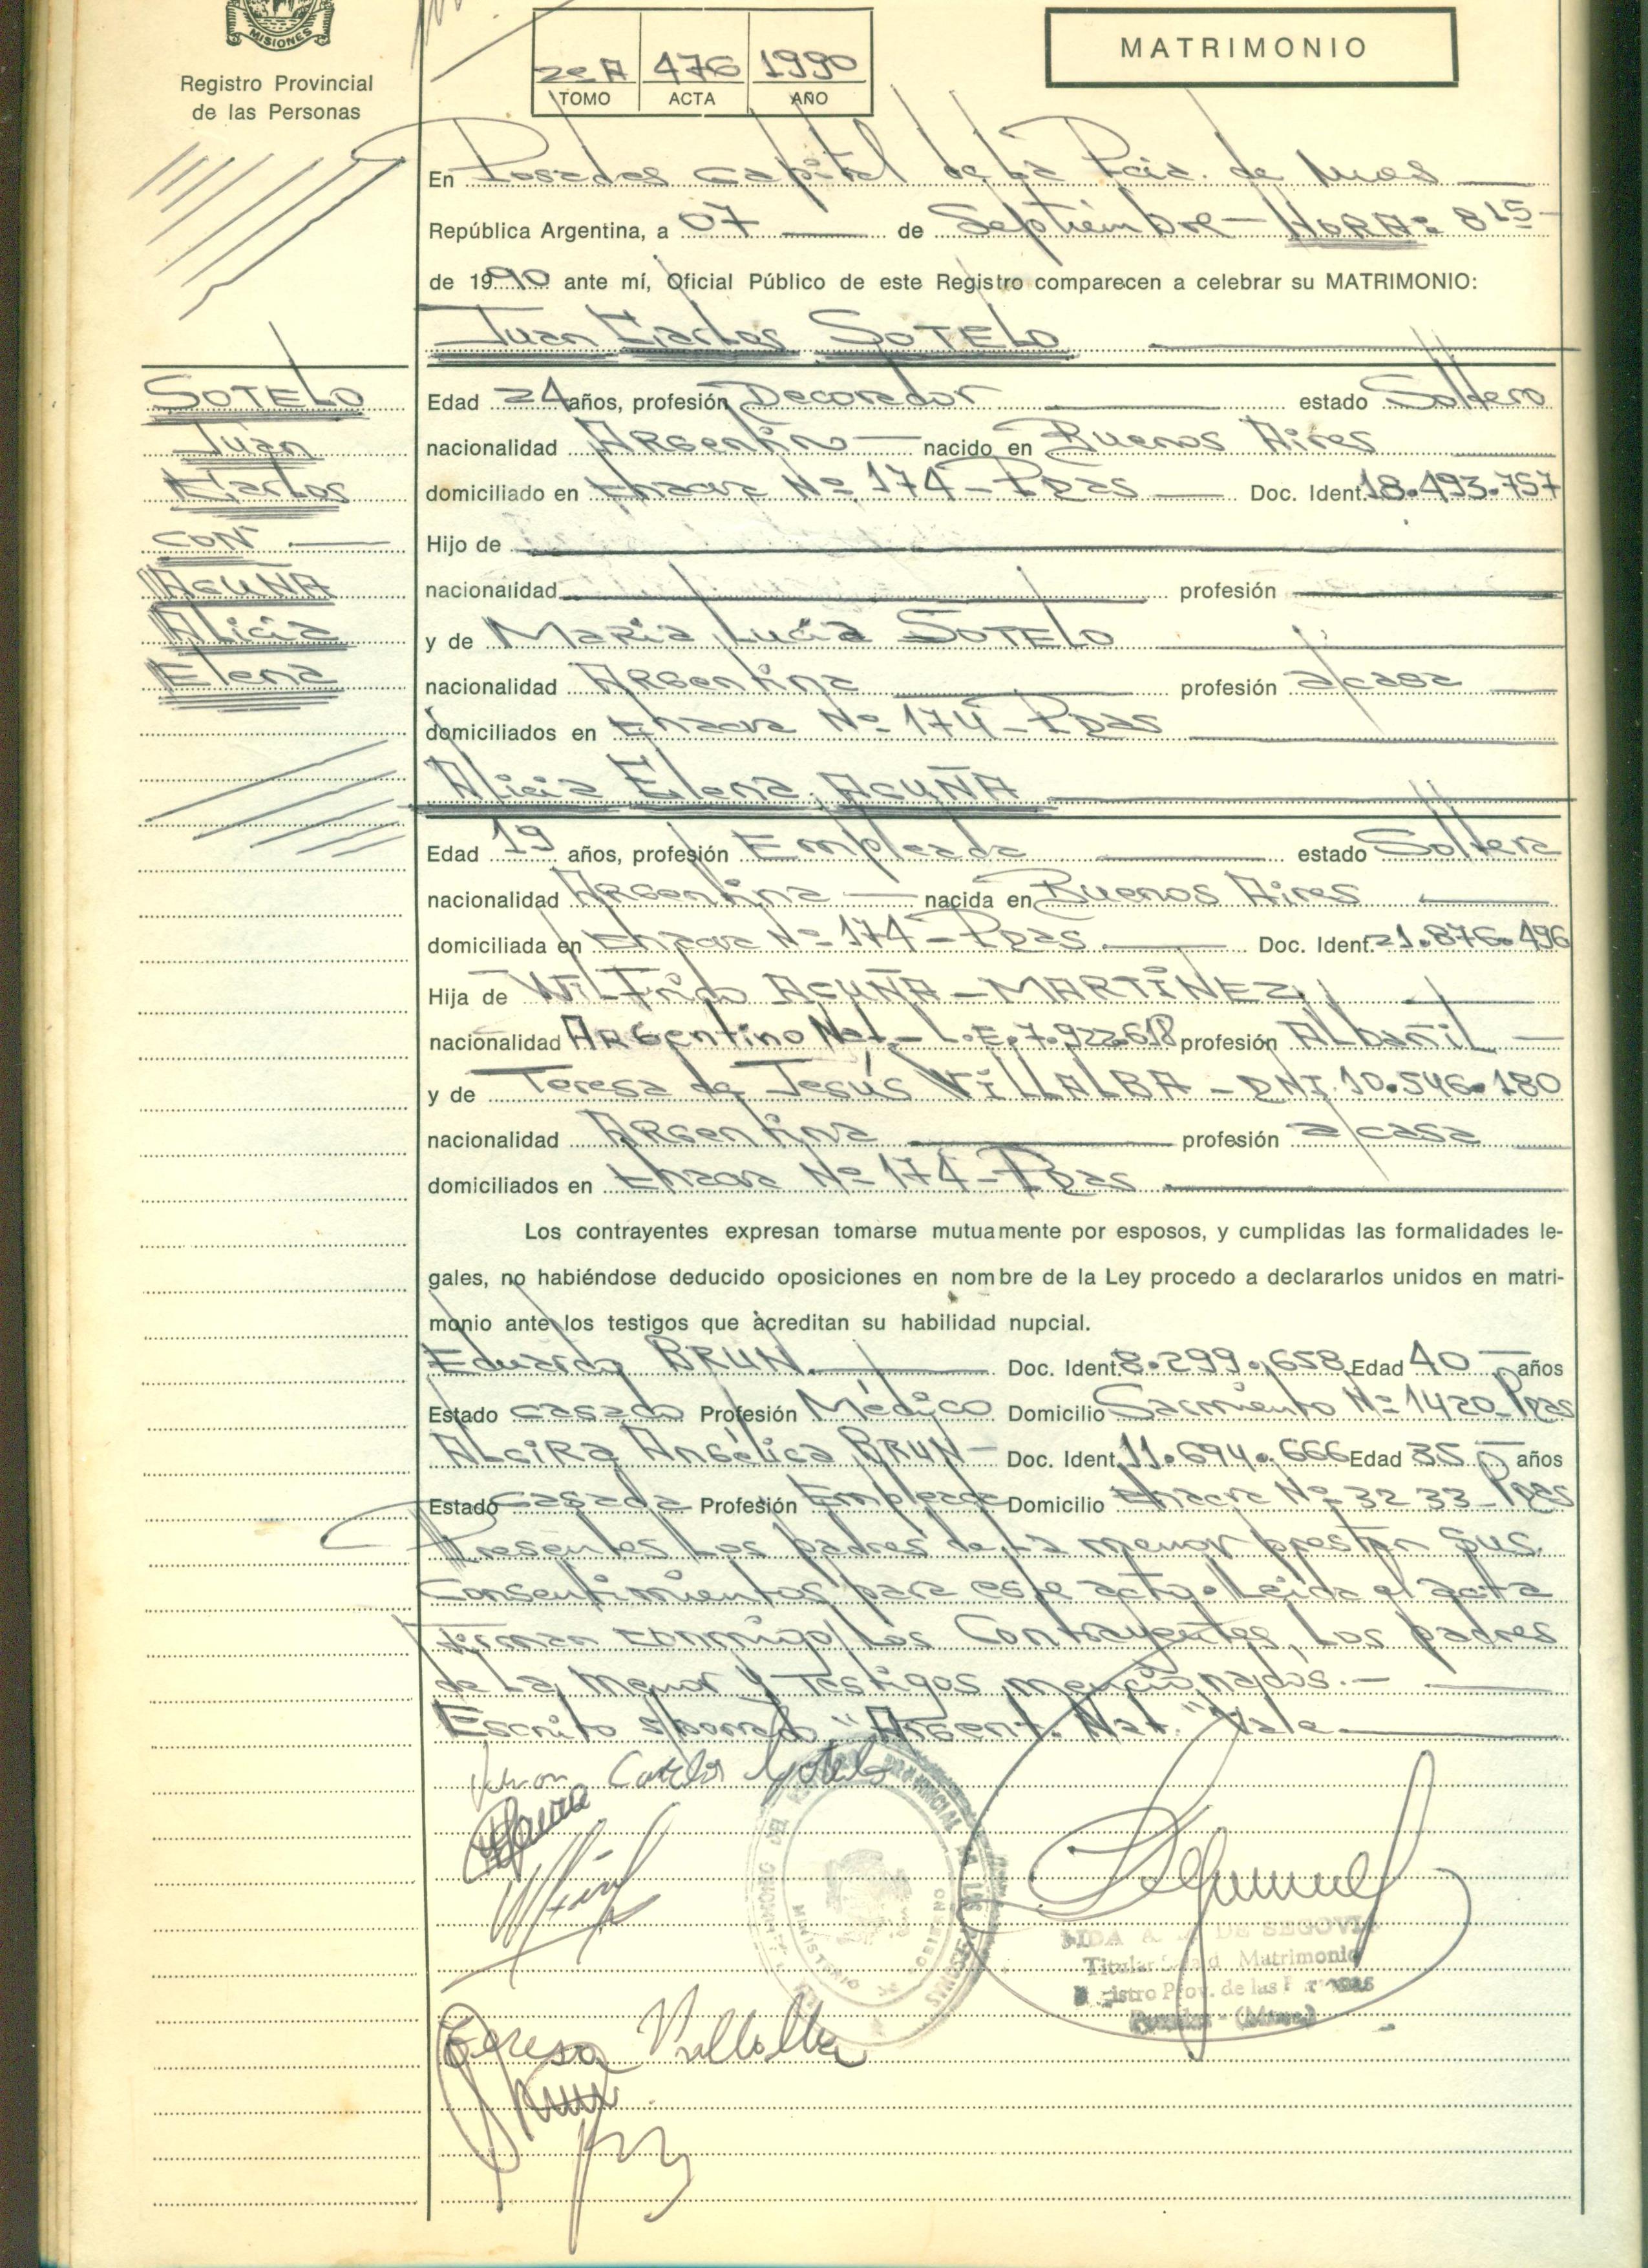 MISIONES
Registro Provincial
de las Personas
2º A 476 1990
TOMO ACTA AÑO
MATRIMONIO
En Posadas Capital de La Pcia. de Mnes
República Argentina, a 07 de Septiembre - HORA: 8 15
de 1990 ante mí, Oficial Público de este Registro comparecen a celebrar su MATRIMONIO:
Juan Carlos SOTELO
SOTELO
Juan
Carlos
CON
ACUÑA
Alicia
Elena
Edad 24 años, profesión Decorador estado Soltero
nacionalidad Argentino - nacido en Buenos Aires
domiciliado en Chacra Nº 174 - Pdas Doc. Ident. 18.493.757
Hijo de
nacionalidad profesión
y de María Lucia SOTELO
nacionalidad Argentina profesión a/casa
domiciliados en Chacra Nº 174 - Pdas
Alicia Elena ACUÑA
Edad 19 años, profesión Empleada estado Soltera
nacionalidad Argentina - nacida en Buenos Aires
domiciliada en Chacra Nº 174 - Pdas Doc. Ident. 21.876.496
Hija de Wilfrido ACUÑA - MARTÍNEZ
nacionalidad Argentino Nat. - L.E. 7.922.618 profesión Albañil
y de Teresa de Jesús VILLALBA - DNI. 10.546.180
nacionalidad Argentina profesión a/casa
domiciliados en Chacra Nº 174 - Pdas
Los contrayentes expresan tomarse mutuamente por esposos, y cumplidas las formalidades le-
gales, no habiéndose deducido oposiciones en nombre de la Ley procedo a declararlos unidos en matri-
monio ante los testigos que acreditan su habilidad nupcial.
Eduardo BRUN Doc. Ident. 8.299.658 Edad 40 años
Estado casado Profesión Médico Domicilio Sarmiento Nº 1420 - Pdas
Alcira Angélica BRUN - Doc. Ident. 11.694.666 Edad 35 años
Estado casada Profesión Empleada Domicilio Chacra Nº 32 33 - Pdas
Presentes Los padres de La menor prestan sus
Consentimientos para este acto. Leida el acta
firman conmigo Los Contrayentes, Los padres
de La Menor y Testigos mencionados. -
Escrito s/borrado "Argent. Nat." Vale
Juan Carlos Sotelo
MINISTERIO DE GOBIERNO
DE SEGOVIA
Titular Matrimonio
Prov. de las
Teresa Villalba